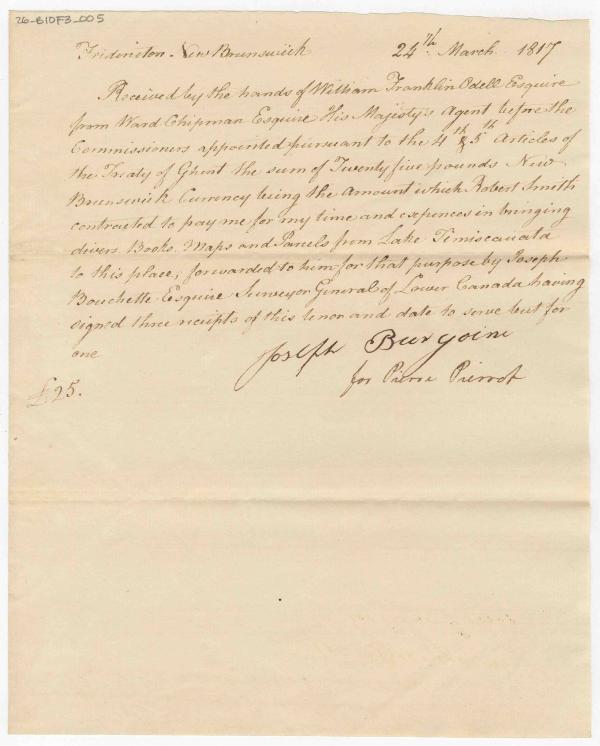 26-B10F3_005
Fridincton New Brunswick 24th March 1817
Received by the hands of William Franklin Odell Esquire
from Ward Chipman Esquire His Majesty's Agent before the
Commissioners appointed pursuant to the 4th & 5th Articles of
the Treaty of Ghent the sum of Twenty five pounds New
Brunswick Currency being the Amount which Robert Smith
contracted to pay me for my time and expences in bringing
divers Books Maps and Parcels from Lake Timiscouata
to this place, forwarded to him for that purpose by Joseph
Bouchette Esquire Surveyor General of Lower Canada having
signed three receipts of this tenor and date to serve but for
one
Joseph Burgoine
for Pierre Pierrot
£25.